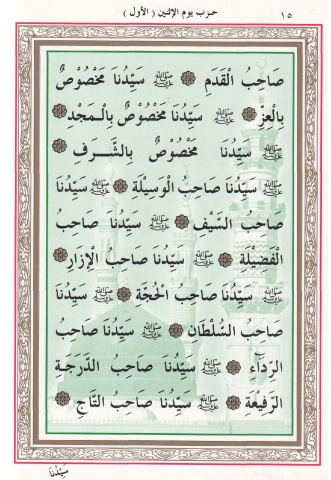 ١٥ حزب يوم الإثنين ( الأول )
صَاحِبُ الْقَدَمِ ۞ ﷺ سَيِّدُنَا مَخْصُوصٌ
بِالْعِزِّ ۞ ﷺ سَيِّدُنَا مَخْصُوصٌ بِالْمَجْدِ ۞
ﷺ سَيِّدُنَا مَخْصُوصٌ بِالشَّرَفِ ۞
ﷺ سَيِّدُنَا صَاحِبُ الْوَسِيلَةِ ۞ ﷺ سَيِّدُنَا
صَاحِبُ السَّيْفِ ۞ ﷺ سَيِّدُنَا صَاحِبُ
الْفَضِيلَةِ ۞ ﷺ سَيِّدُنَا صَاحِبُ الْإِزَارِ ۞
ﷺ سَيِّدُنَا صَاحِبُ الْحُجَّةِ ۞ ﷺ سَيِّدُنَا
صَاحِبُ السُّلْطَانِ ۞ ﷺ سَيِّدُنَا صَاحِبُ
الرِّدَآءِ ۞ ﷺ سَيِّدُنَا صَاحِبُ الدَّرَجَةِ
الرَّفِيعَةِ ۞ ﷺ سَيِّدُنَا صَاحِبُ التَّاجِ ۞
سَيِّدُنَا